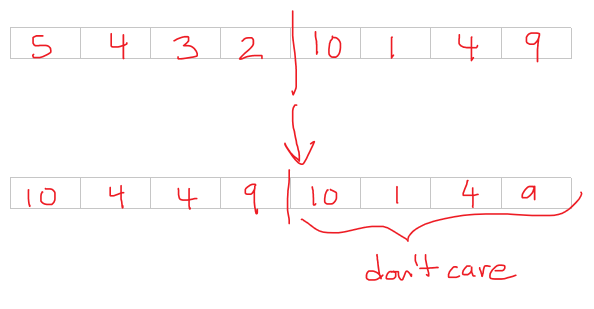 5 4 3 2 10 1 4 9
10 4 4 9 10 1 4 9
don't care